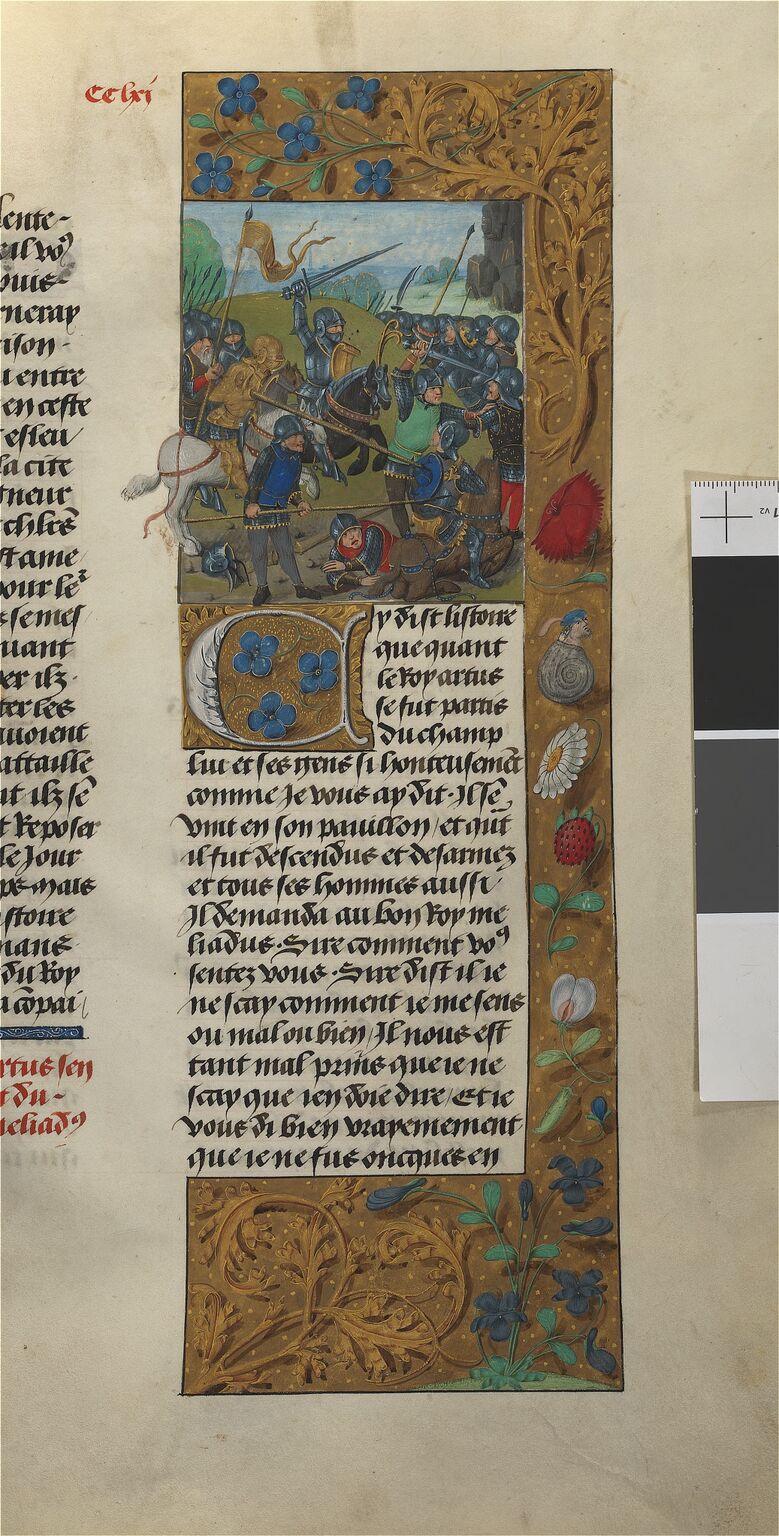 CClxj
lente-
eil vo⁹
puis-
rneray
ison-
u entre
en ceste
esleu
la cite
gneur
ame
pour le
ses mes
uant
er ilz
ter les
auoient
attaille
nt ilz se
t Reposer
le Jour
mais
istoire
mans
du Roy
a cōpai
rtus sen
t du-
meliad⁹
Cy dist listoire
que quant
le Roy artus
se fut partis
du champ
luy et ses gens si honteusemēt
comme Je vous ay dit. Il sē
vint en son pauillon / et quāt
il fut descendus et desarmez
et tous ses hommes aussi /
Il demanda au bon Roy me
liadus. Sire comment vo⁹
sentez vous. Sire dist il ie
ne scay comment ie me sens
ou mal ou bien / Il nous est
tant mal prins que ie ne
scay que ien doie dire / Et ie
vous di bien vrayemement
que ie ne fus oncques en
v2